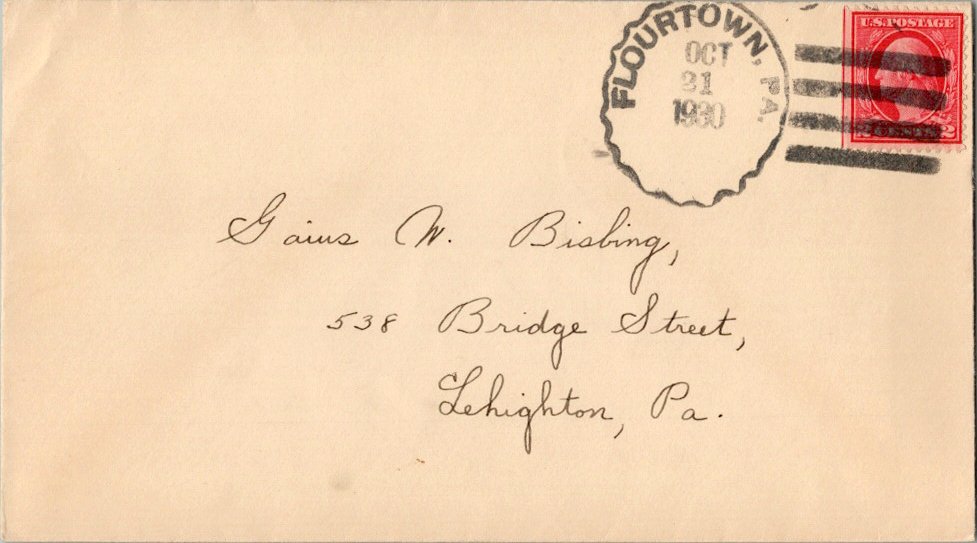 FLOURTOWN, PA.
OCT
21
1930
U.S. POSTAGE
2 CENTS 2
Gaius W. Bisbing,
538 Bridge Street,
Lehighton, Pa.